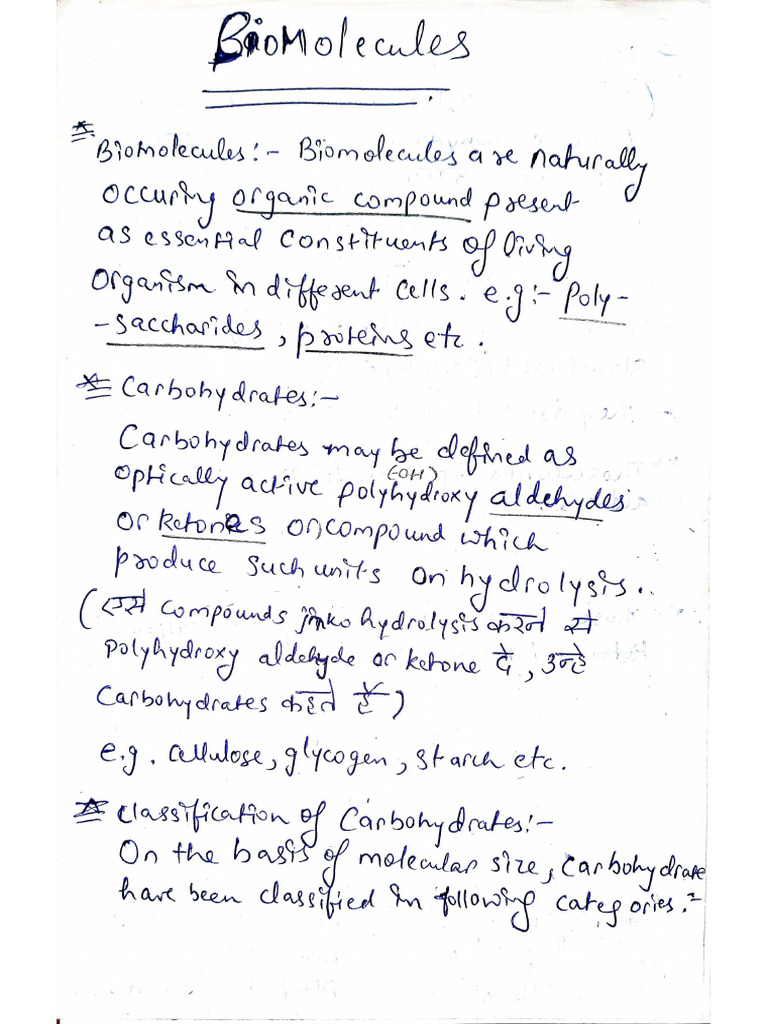 BioMolecules
* Biomolecules:- Biomolecules are naturally
occuring organic compound present
as essential constituents of living
organism in different cells. e.g:- Poly-
-saccharides, proteins etc.
* Carbohydrates:-
Carbohydrates may be defined as
(-OH)
optically active polyhydroxy aldehydes
or ketones or compound which
produce such units on hydrolysis.
(ऐसे compounds jinko hydrolysis करने से
polyhydroxy aldehyde or ketone दे, उन्हे
Carbohydrates कहते है)
e.g. cellulose, glycogen, starch etc.
* Classification of Carbohydrates:-
On the basis of molecular size, Carbohydrate
have been classified in following categories.